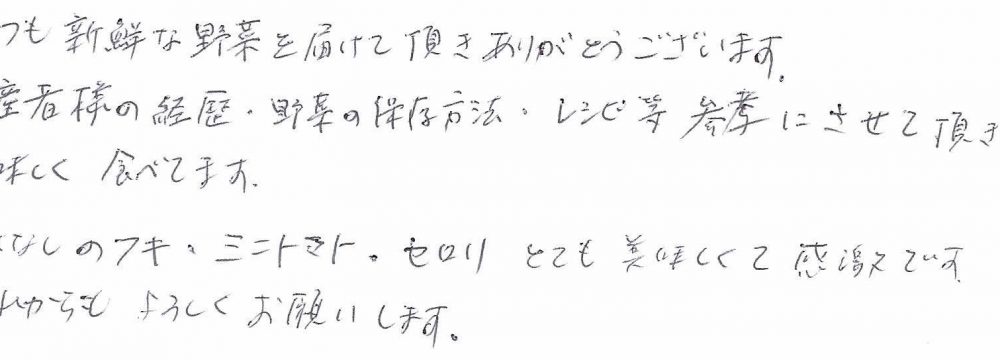 つも新鮮な野菜を届けて頂きありがとうございます。
産者様の経歴・野菜の保存方法・レシピ等参考にさせて頂き
味しく食べてます。
なしのフキ、ミニトマト。セロリとても美味しくて感激です
れからもよろしくお願いします。